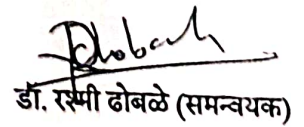 डॉ. रश्मी ढोबळे (समन्वयक)